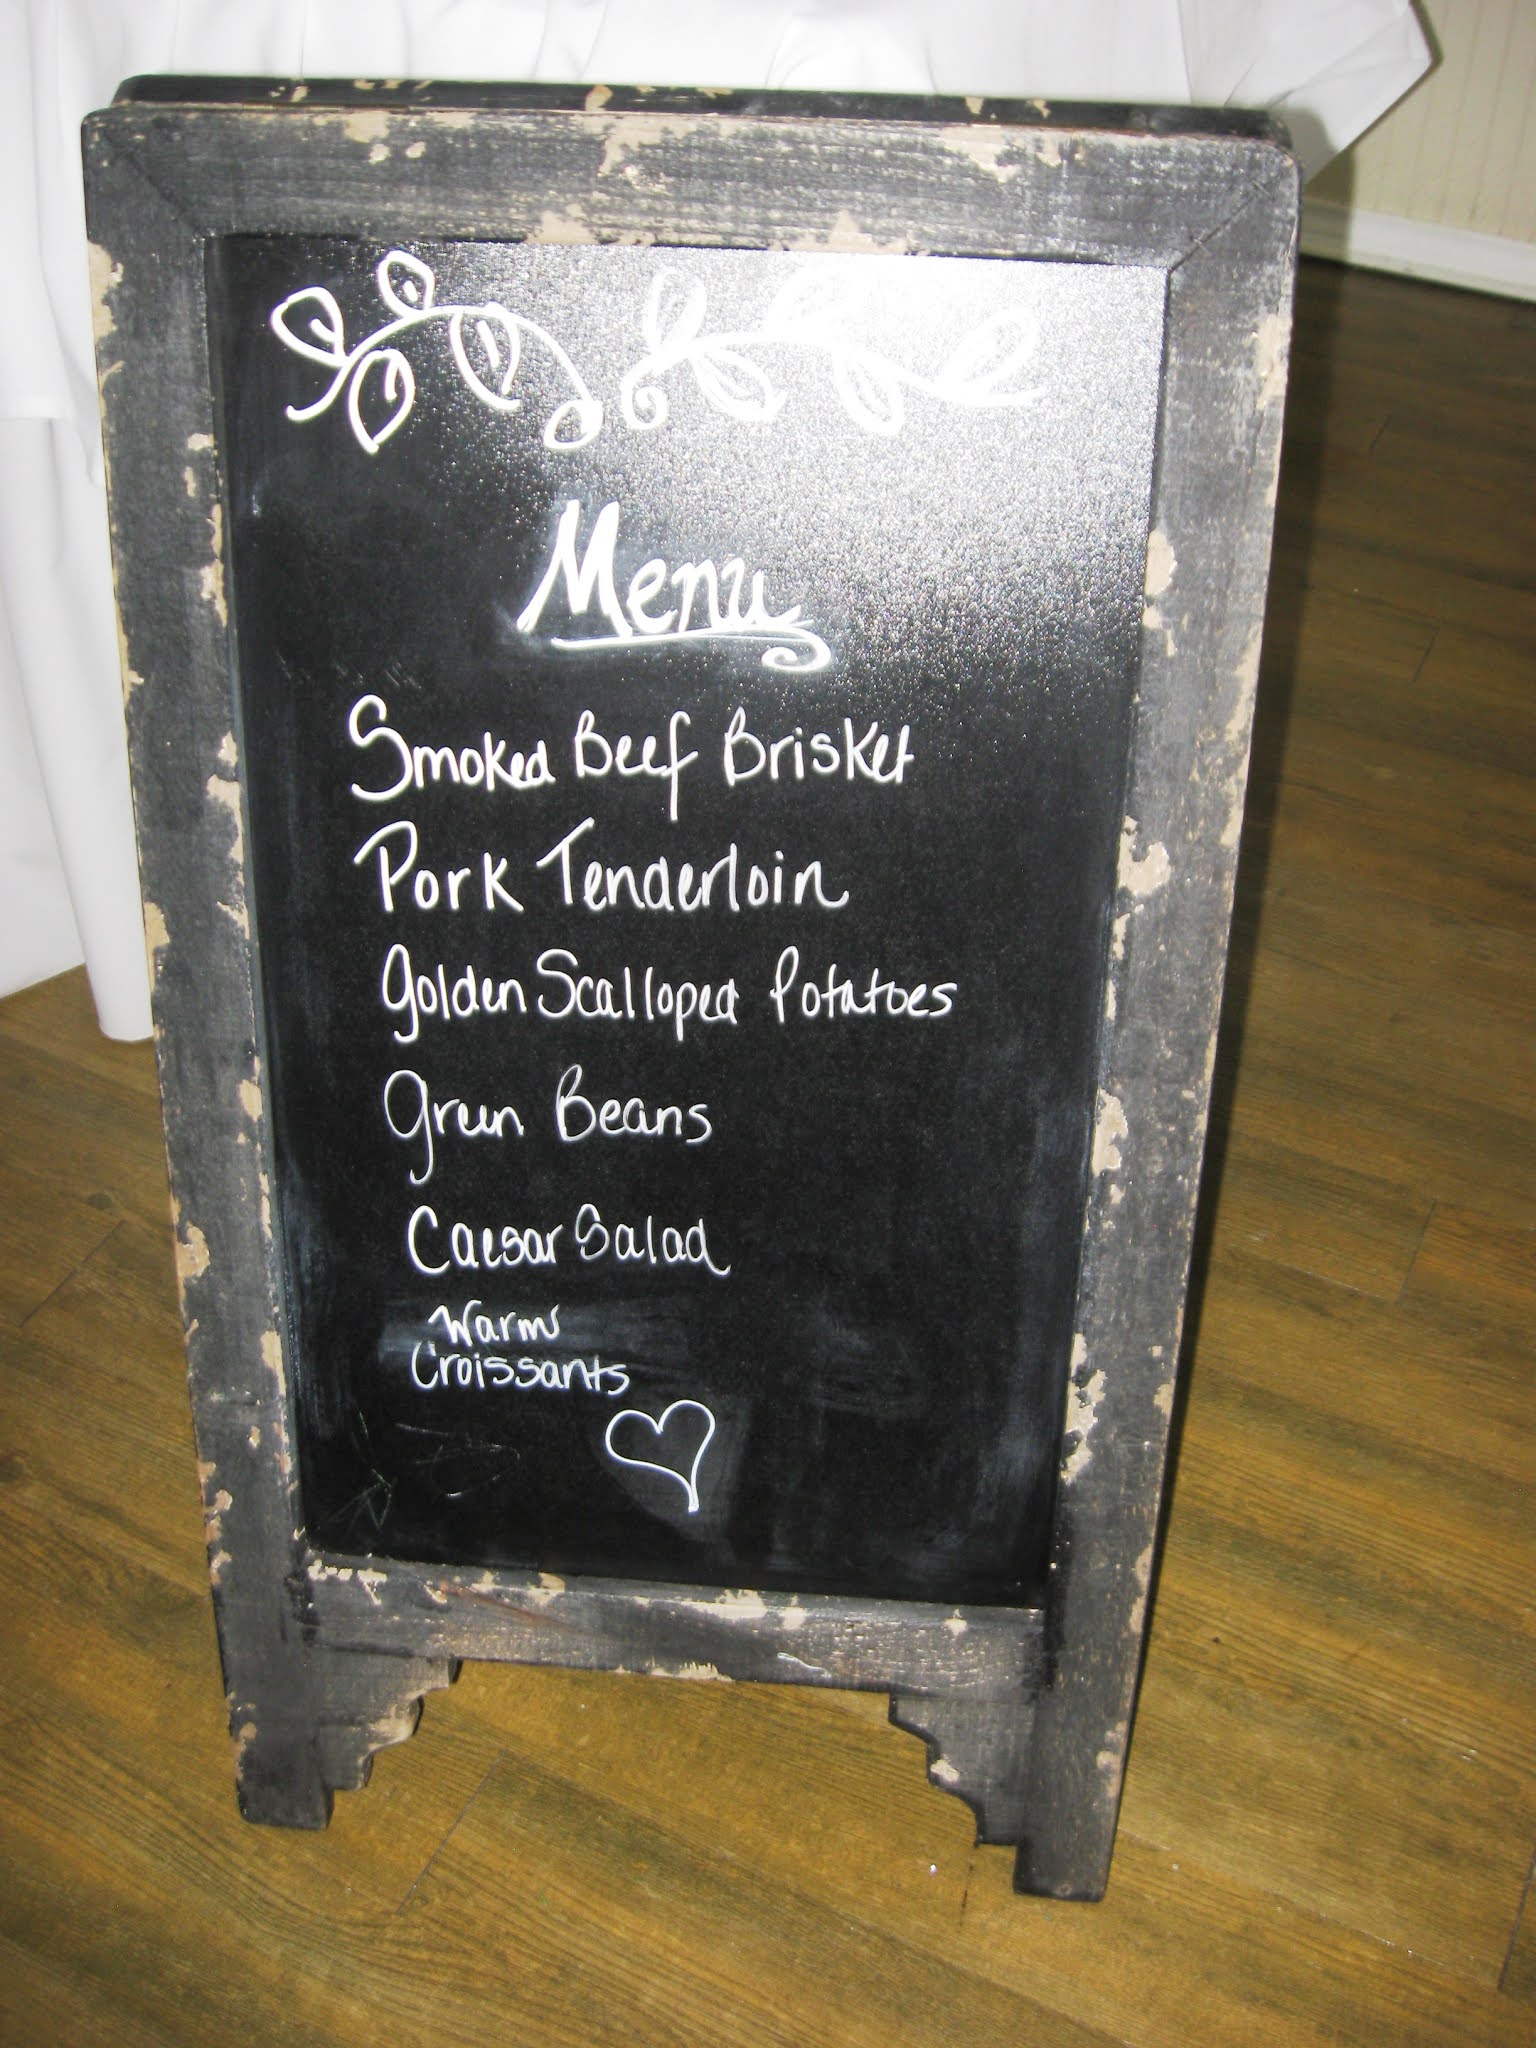 Menu
Smoked Beef Brisket
Pork Tenderloin
Golden Scalloped Potatoes
Green Beans
Caesar Salad
Warm
Croissants